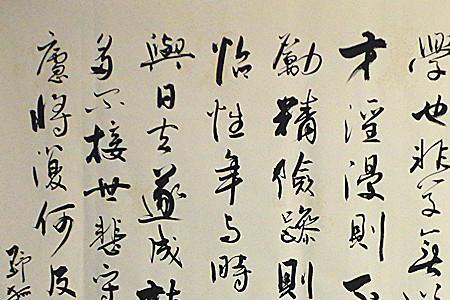 學也非学無
才淫漫則不
勵精險躁則
怡性年与時
與日去遂成
多不接世悲守
廬將復何及